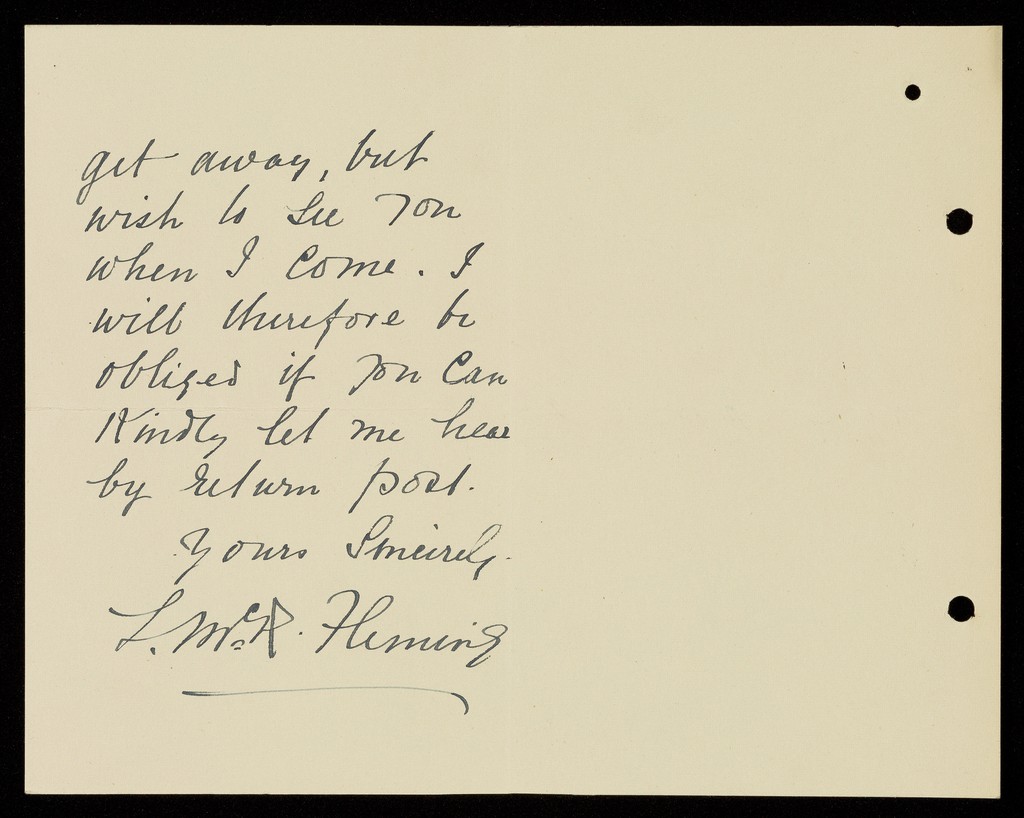 get away, but
wish to see you
when I come. I
will therefore be
obliged if you can
Kindly let me hear
by return post.
Yours Sincerely.
L. McK. Fleming